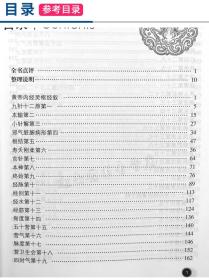 目录 参考目录
全书点评 1
整理说明 10
黄帝内经灵枢经叙 1
九针十二原第一 3
本输第二 15
小针解第三 27
邪气脏腑病形第四 34
根结第五 47
寿夭刚柔第六 56
官针第七 64
本神第八 71
终始第九 76
经脉第十 89
经别第十一 114
经水第十二 119
经筋第十三 124
骨度第十四 136
五十营第十五 140
营气第十六 143
脉度第十七 146
营卫生会第十八 152
四时气第十九 162